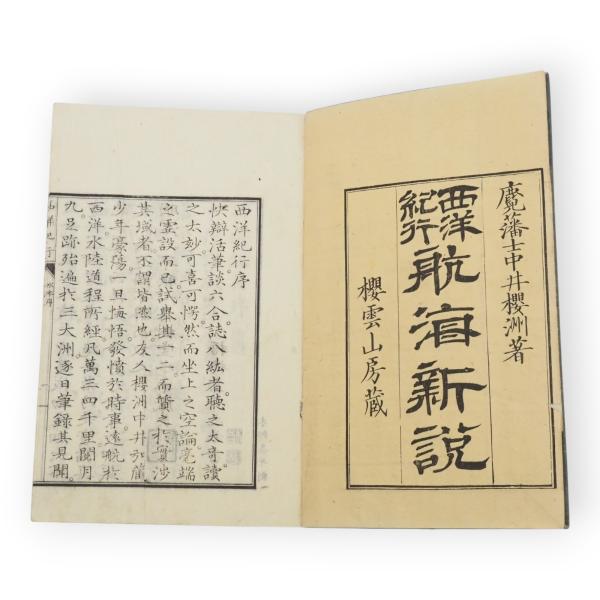 麑藩士中井櫻洲著
西洋紀行
航海新説
櫻雲山房蔵
西洋紀行序
快辯活筆談六合誌八紘者聽之太奇讀
之太妙可喜可愕然而坐上之空論毫端
之虚設而已試擧其一二而質之於實涉
其域者不謂皆然也友人櫻洲中井弘蔵
少年豪蕩一旦悔悟發憤於時事遠航於
西洋水陸道程所經凡萬三四千里閲月
九足跡殆遍於三大洲逐日筆錄其見聞
西洋紀行